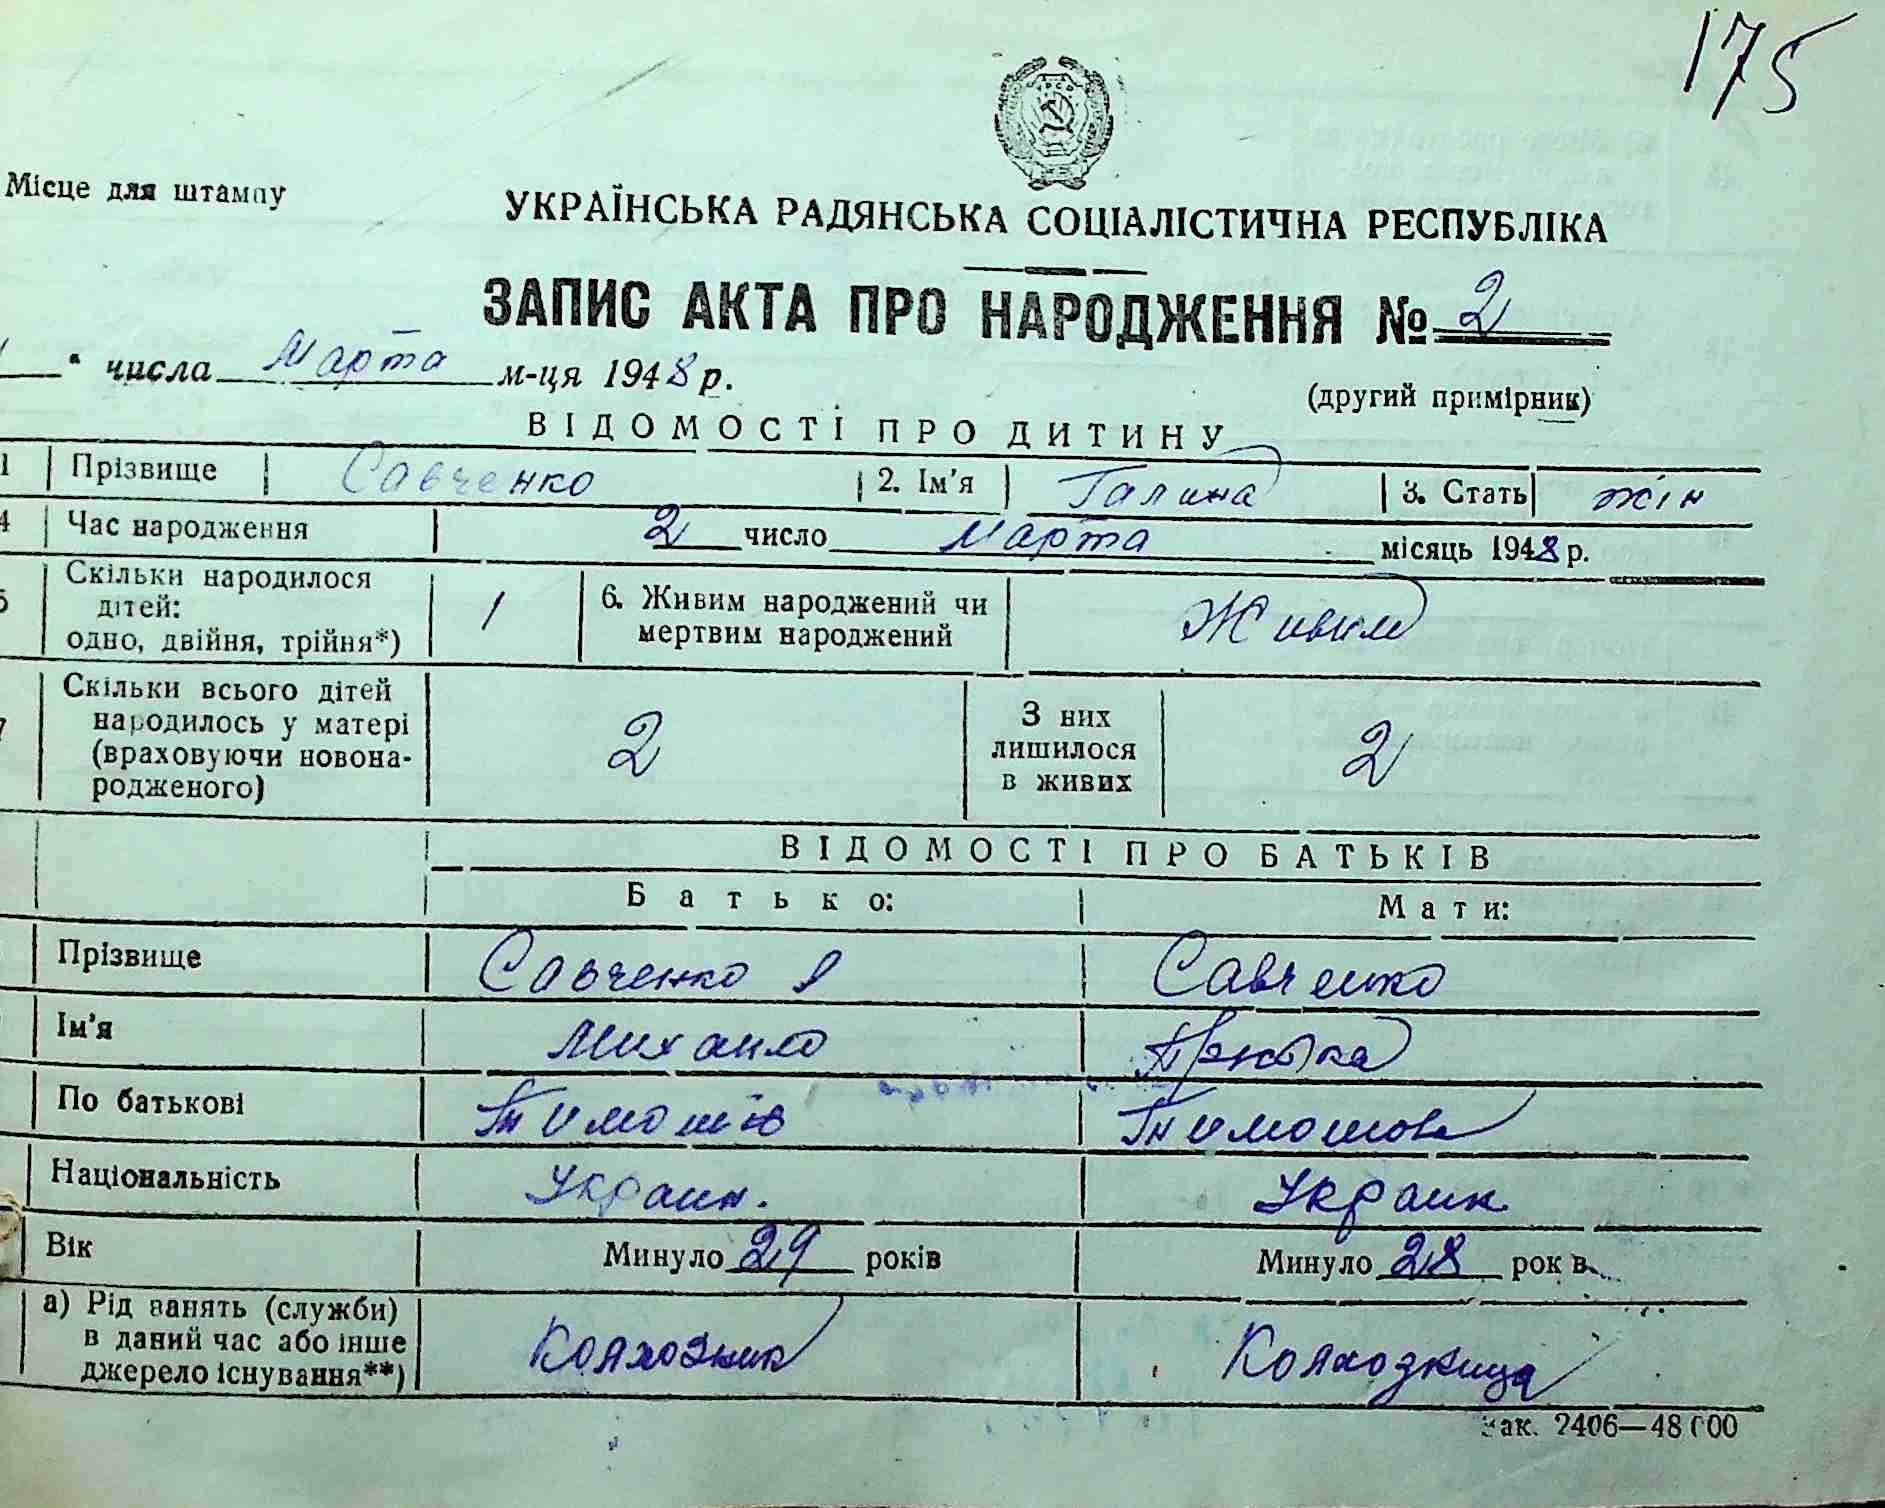 175
Місце для штампу
УКРАЇНСЬКА РАДЯНСЬКА СОЦІАЛІСТИЧНА РЕСПУБЛІКА
ЗАПИС АКТА ПРО НАРОДЖЕННЯ № 2
" числа Марта м-ця 1948 р.
(другий примірник)
ВІДОМОСТІ ПРО ДИТИНУ
1 Прізвище Савченко 2. Ім'я Галина 3. Стать жін
4 Час народження 2 число Марта місяць 1948 р.
5 Скільки народилося дітей: одно, двійня, трійня*) 1 6. Живим народжений чи мертвим народжений Живим
7 Скільки всього дітей народилось у матері (враховуючи новонародженого) 2 З них лишилося в живих 2
ВІДОМОСТІ ПРО БАТЬКІВ
Батько: Мати:
Прізвище Савченко Савченко
Ім'я Михайло
По батькові Тимошів Тимошова
Національність Украин. Украин.
Вік Минуло 29 років Минуло 28 рок в
а) Рід занять (служби) в даний час або інше джерело існування**) Колхозник Колхозница
Зак. 2406—48000